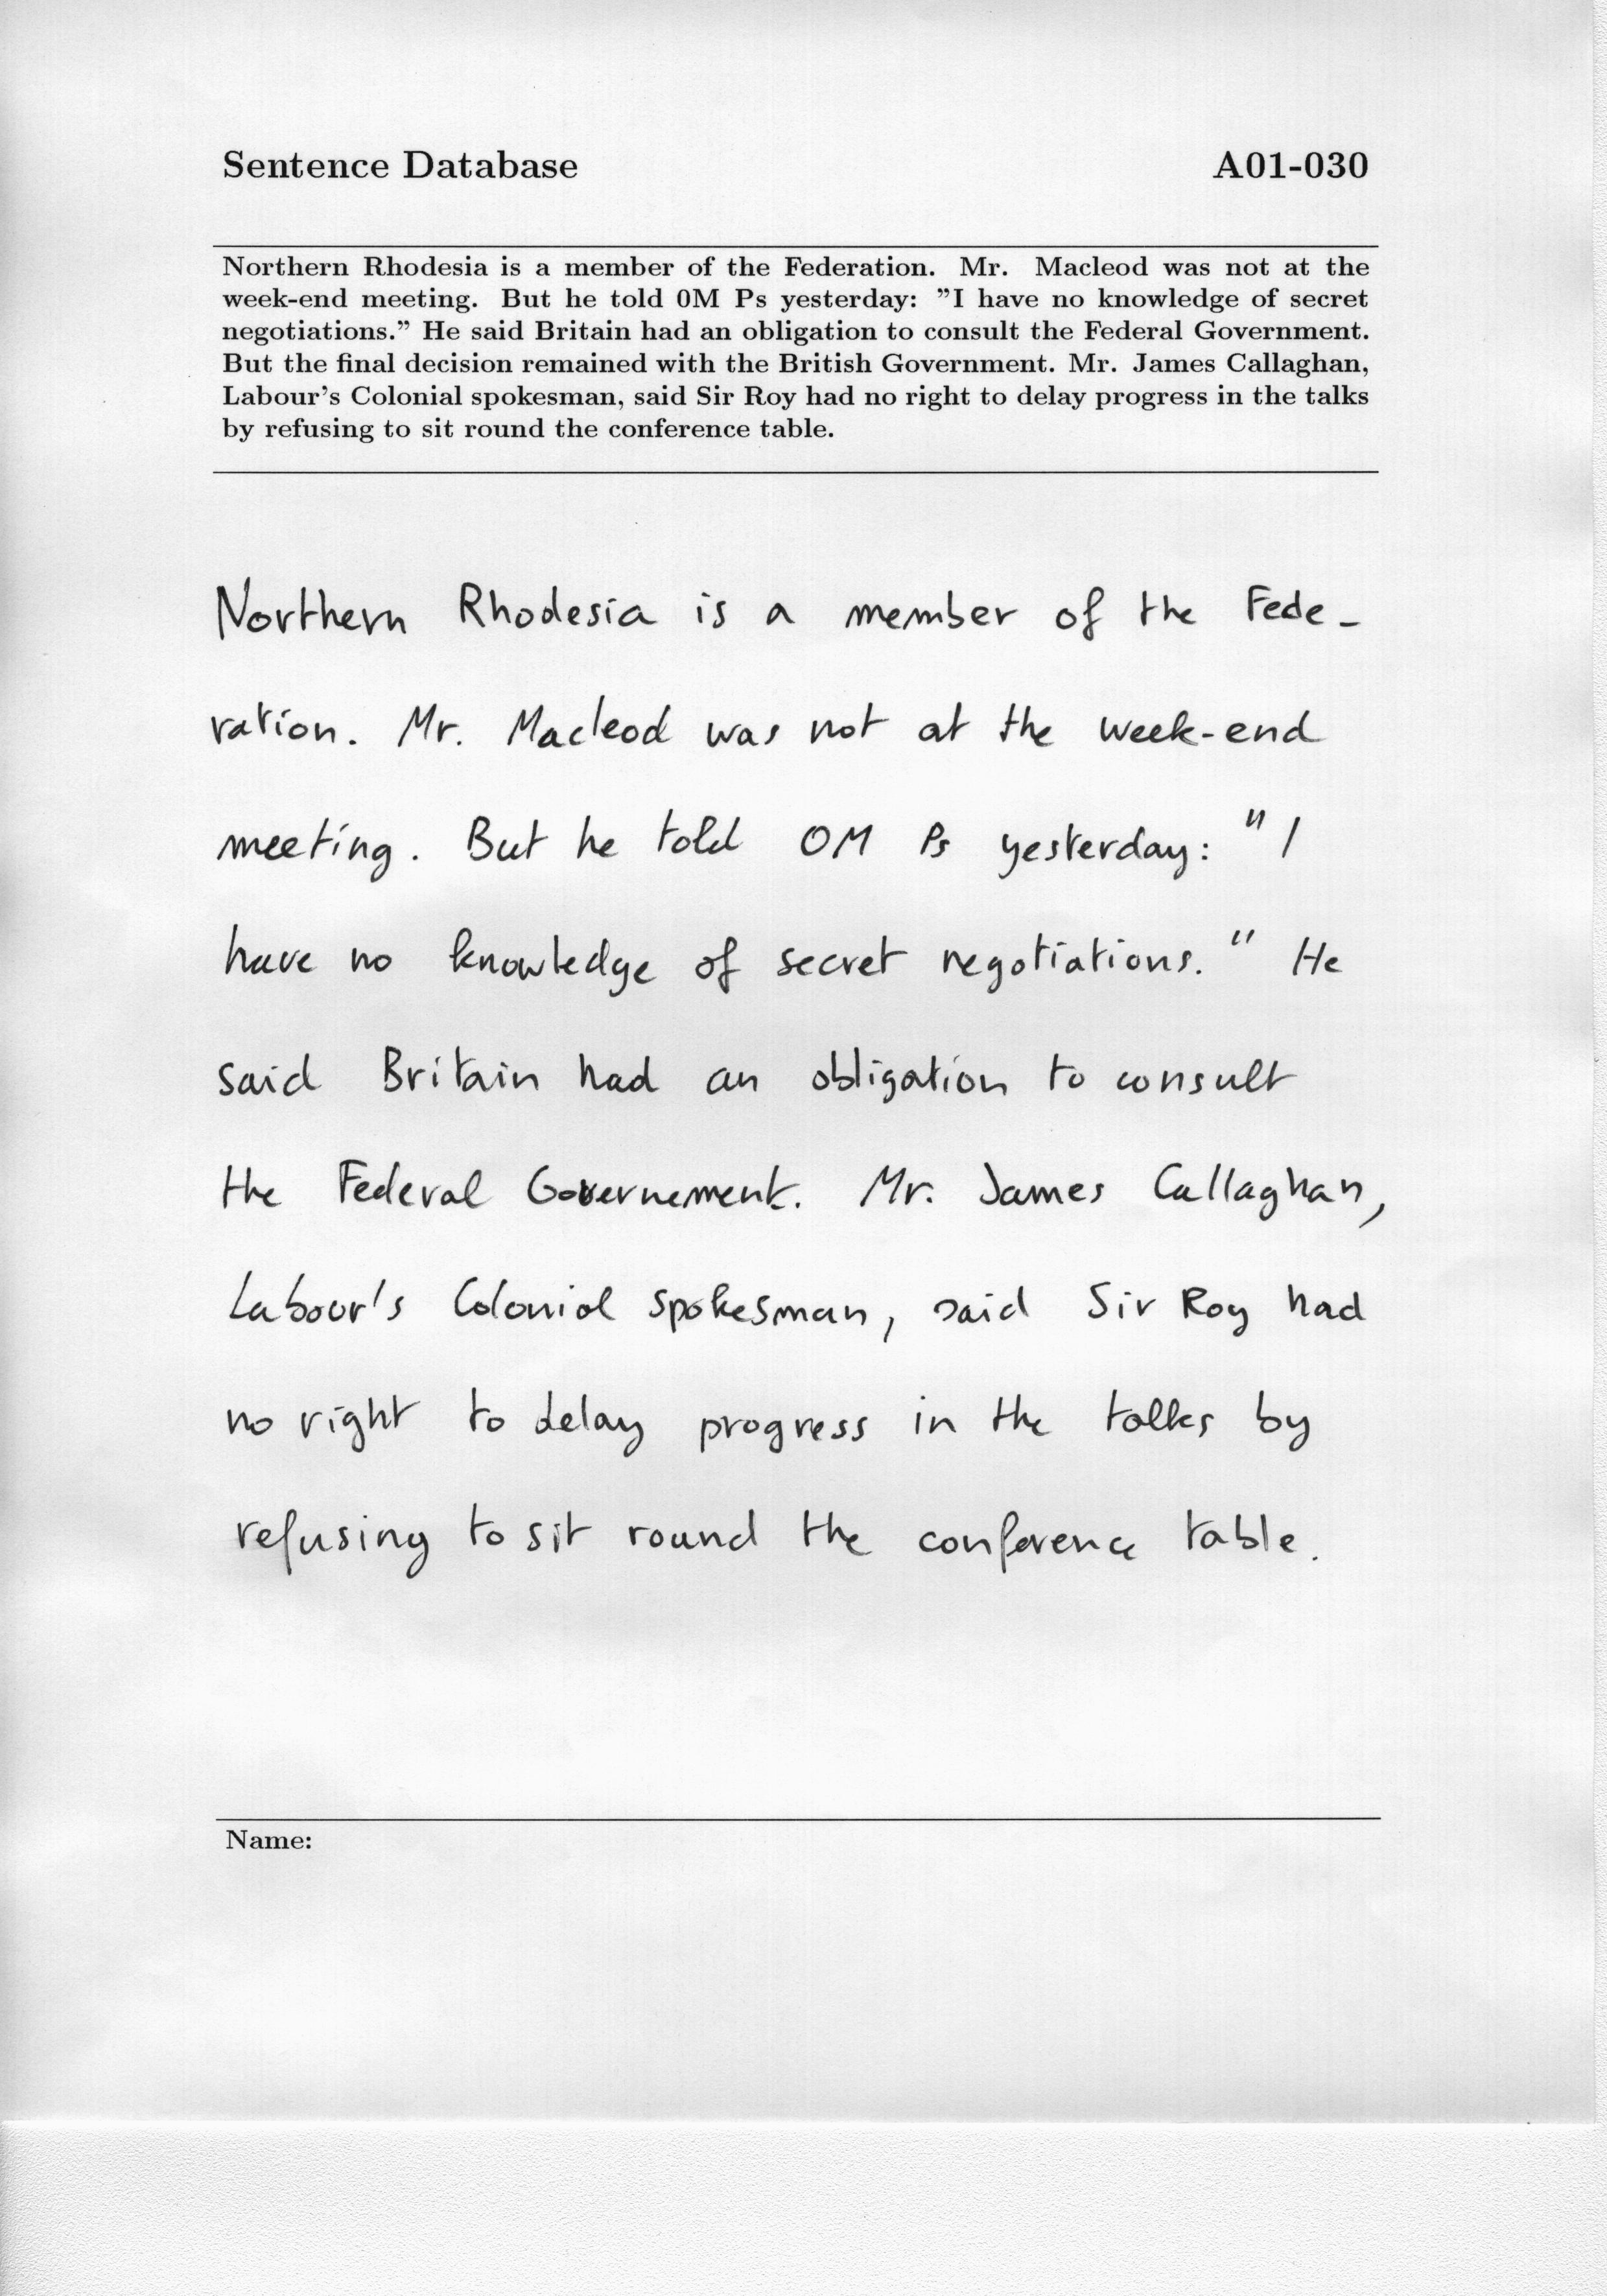 Sentence Database A01-030
Northern Rhodesia is a member of the Federation. Mr. Macleod was not at the
week-end meeting. But he told 0M Ps yesterday: ”I have no knowledge of secret
negotiations.” He said Britain had an obligation to consult the Federal Government.
But the final decision remained with the British Government. Mr. James Callaghan,
Labour’s Colonial spokesman, said Sir Roy had no right to delay progress in the talks
by refusing to sit round the conference table.
Northern Rhodesia is a member of the Fede-
ration. Mr. Macleod was not at the week-end
meeting. But he told OM Ps yesterday: "I
have no knowledge of secret negotiations." He
said Britain had an obligation to consult
the Federal Governement. Mr. James Callaghan,
Labour's Colonial spokesman, said Sir Roy had
no right to delay progress in the talks by
refusing to sit round the conference table.
Name: